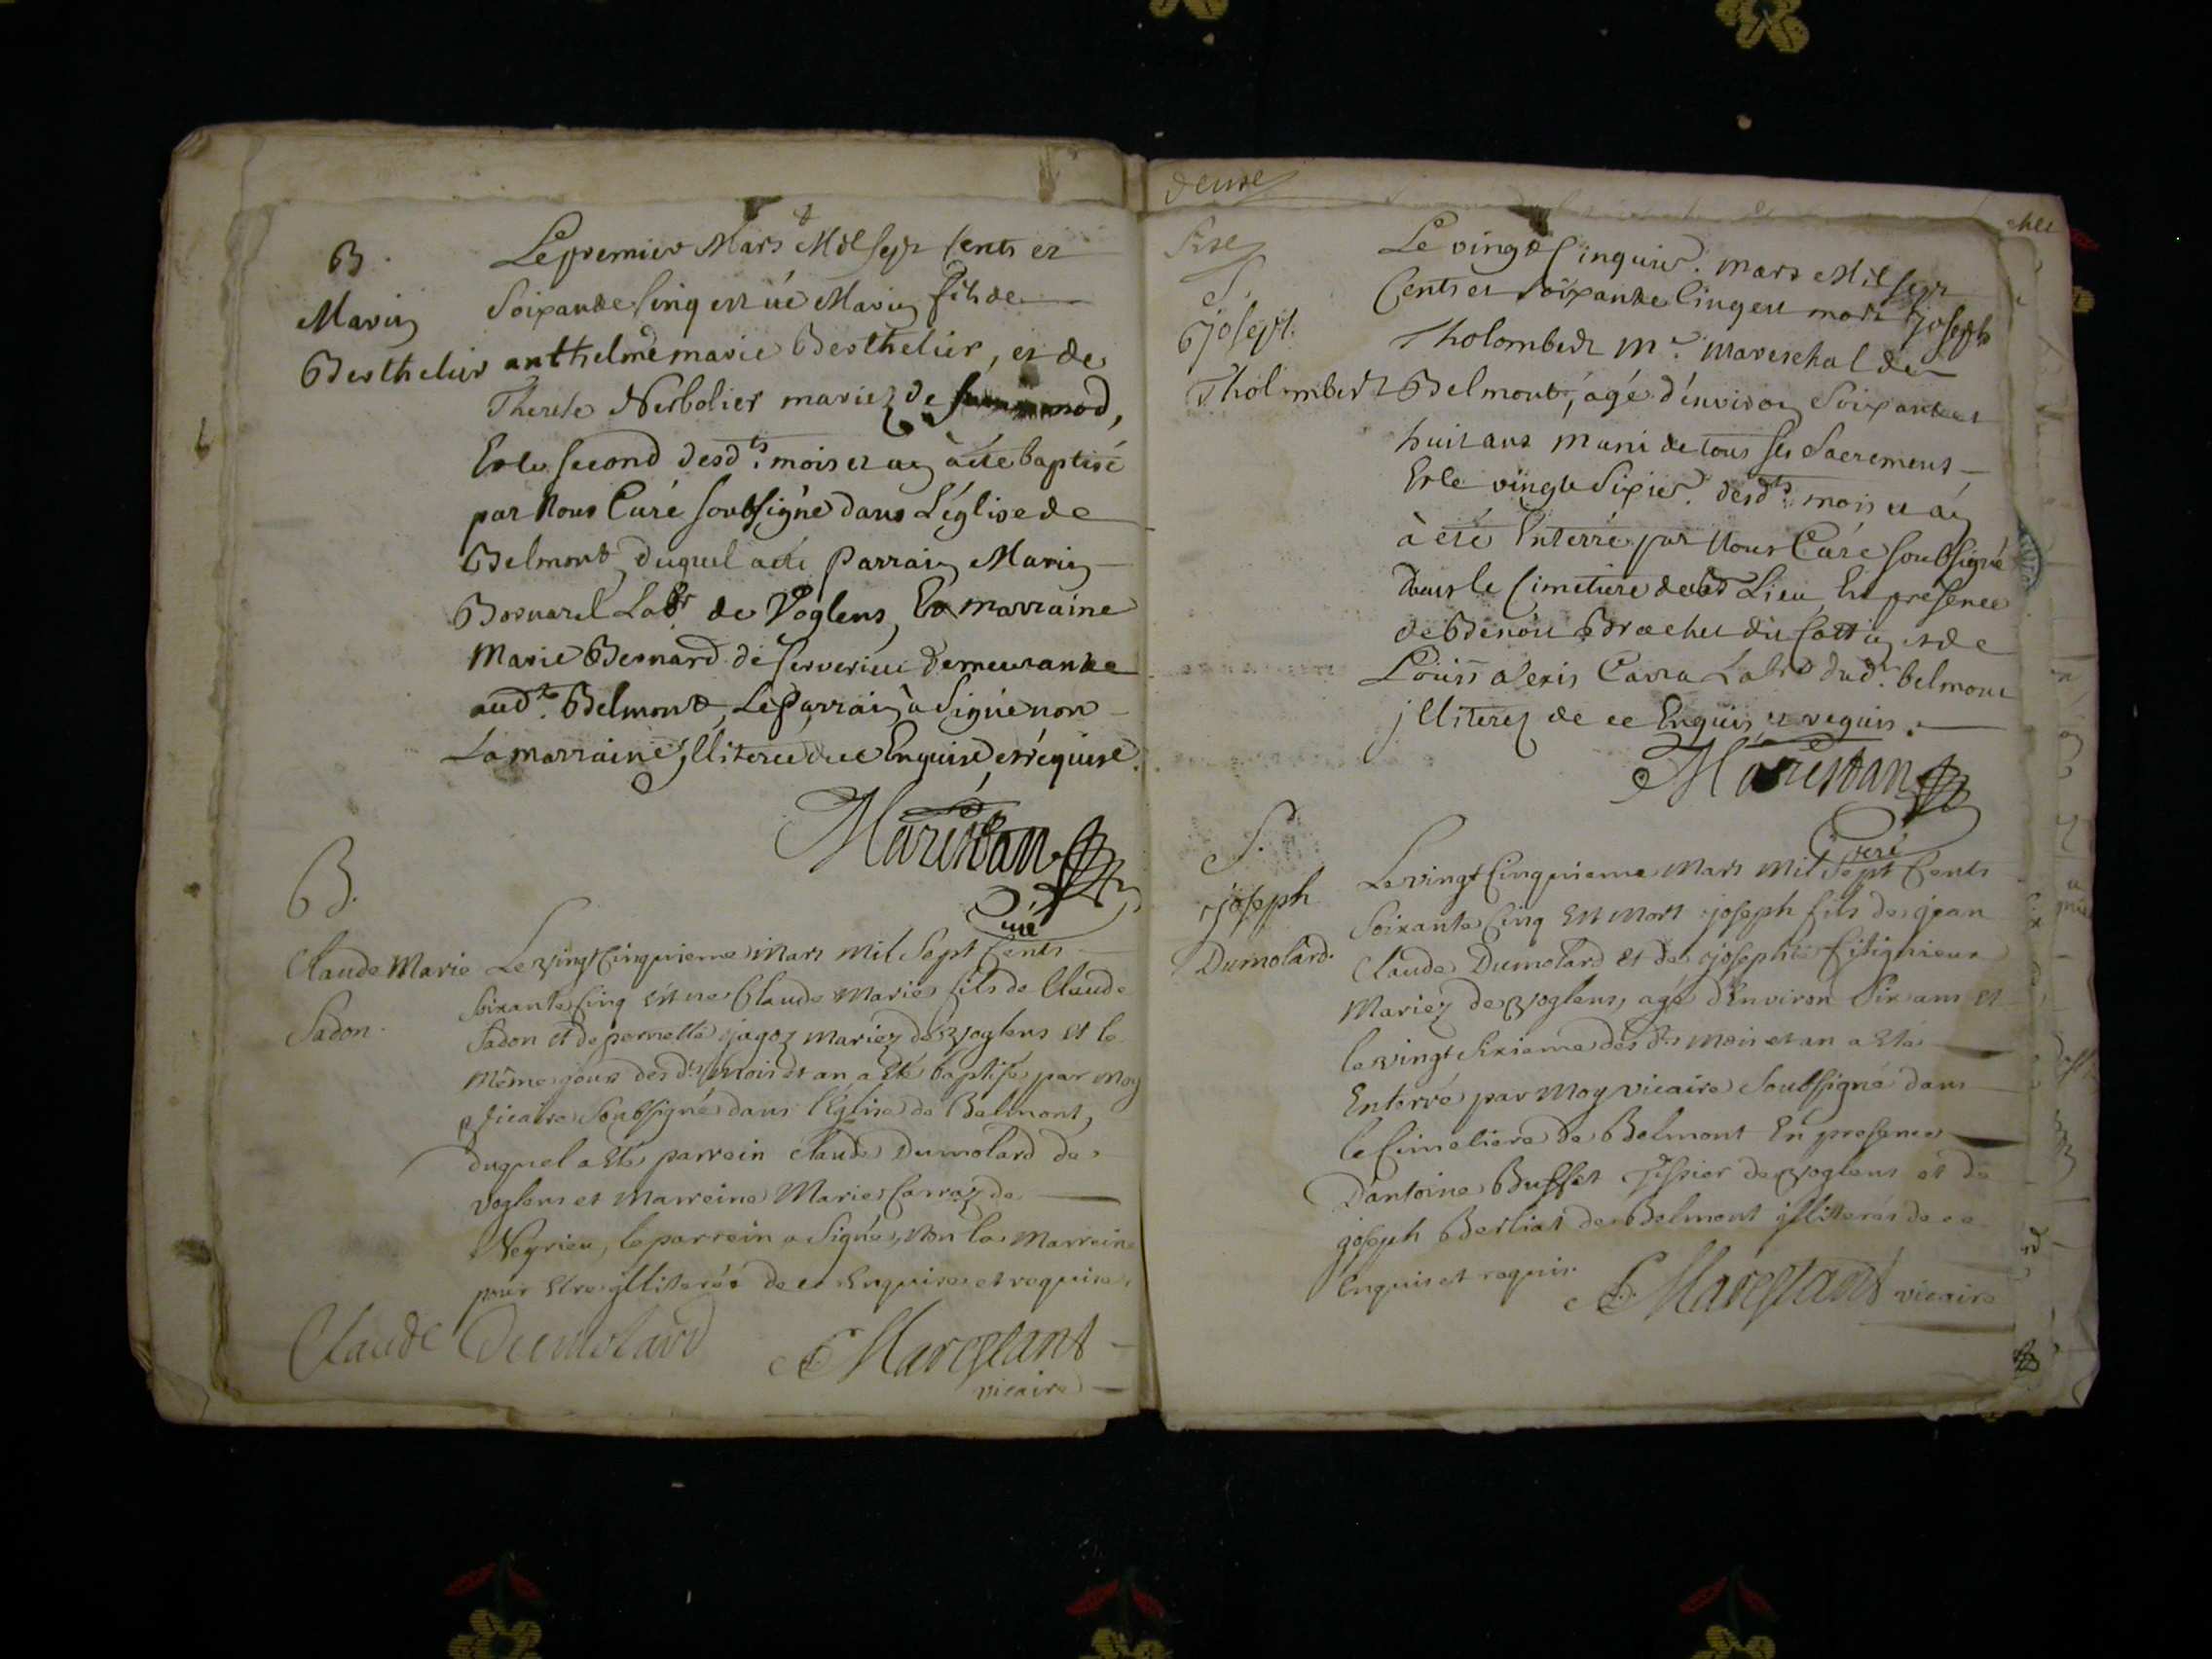 B.
Marin
Berthelier
Le premier Mars Mil sept Cents et
Soixante Cinq est né Marin fils de
anthelme marie Berthelier, et de
Therese Nerbolier mariez de
Et le second desd.ts mois et an à été baptisé
par Nous Curé soubsigné dans L'église de
Belmont, duquel a été Parrain Marin
Labr. de Voglens, Et marraine
Marie Bernard de Serverieu demeurante
aud.t Belmont, Le Parrain à Signé non
La marraine jlliterée de ce Enquise, et réquise.
Marestan
Curé
B.
Claude Marie
Sadon.
Le vingt Cinquieme Mars Mil Sept Cents
Soixante Cinq Est né Claude Marie fils de Claude
Sadon et de pernette jagoz Mariez de Voglens et le
Même jour des d.ts Mois et an a Eté baptisé par Moy
Vicaire Soubsigné dans l'Eglise de Belmont,
duquel a Eté parrein Claude Dumolard de
Voglens et Marreine Marie Carraz de
Veyrieu, le parrein a Signé, Non la Marreine
pour Etre jlliterée de ce Enquise et requise.
Claude Dumolard
Marestant
vicaire
deuxe
S.
Joseph
Tholombert
Le vingt Cinquie. mars Mil sept
Cents et Soixante Cinq est mort Joseph
Tholombert M.e Mareschal de
Belmont, âgé d'environ Soixante et
huit ans muni de tous ses Sacrements
Et le vingt Sixie. desd.ts mois et an
à été Enterré par Nous Curé soubsigné
dans le Cimetiere dud Lieu En presence
de Benoit Brochet du et de
Louis alexis Carra Labr. dud.t belmont
jlliterez de ce Enquis, et requis.
Marestan
Curé
S.
Joseph
Dumolard.
Le vingt Cinquieme Mars Mil Sept Cents
Soixante Cinq Est Mort joseph fils de jean
Claude Dumolard et de josephte
Mariez de Voglens, agé d'Environ Six ans et
le vingt Sixieme des d.ts Mois et an a Eté
Enterré par Moy vicaire Soubsigné dans
le Cimetiere de Belmont En presence
D'antoine Buffet Tessier de Voglens et de
joseph Berliat de Belmont jlliterés de ce
Enquis et requis.
Marestant vicaire